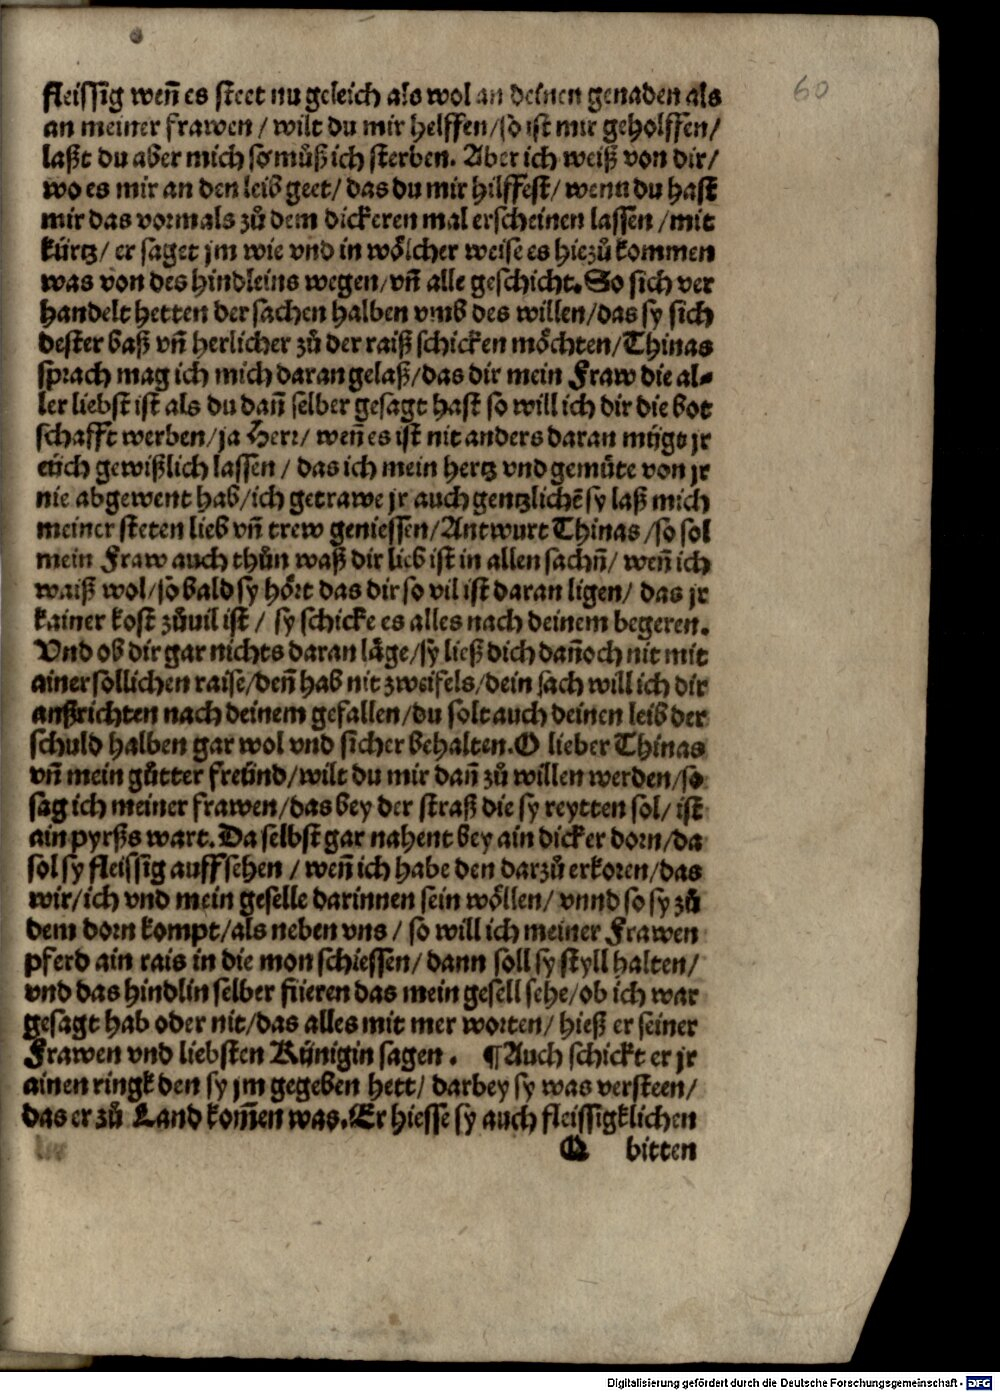 fleissig weñ es steet nu geleich als wol an deinen genaden als
60
an meiner frawen / wilt du mir helffen / so ist mir geholffen /
laßt du aber mich so můß ich sterben. Aber ich weiß von dir /
wo es mir an den leib geet / das du mir hilffest / wenn du hast
mir das vormals zů dem dickeren mal erscheinen lassen / mit
kürtz / er saget jm wie vnd in wôlcher weise es hiezů kommen
was von des hindleins wegen / vñ alle geschicht. So sich ver
handelt hetten der sachen halben vmb des willen / das sy sich
dester baß vñ herlicher zů der raiß schicken môchten / Thinas
sprach mag ich mich daran gelaß / das dir mein Fraw die al⸗
ler liebst ist als du dañ selber gesagt hast so will ich dir die bot
schafft werben / ja Herr / weñ es ist nit anders daran mügt jr
eüch gewißlich lassen / das ich mein hertz vnd gemüte von jr
nie abgewent hab / ich getrawe jr auch gentzlichē sy laß mich
meiner steten lieb vñ trew geniessen / Antwurt Thinas / so sol
mein Fraw auch thůn waß dir lieb ist in allen sachñ / weñ ich
waiß wol / so bald sy hôrt das dir so vil ist daran ligen / das jr
kainer kost zůuil ist / sy schicke es alles nach deinem begeren.
Vnd ob dir gar nichts daran lâge / sy ließ dich dañoch nit mit
ainer sollichen raise / deñ hab nit zweifels / dein sach will ich dir
außrichten nach deinem gefallen / du solt auch deinen leib der
schuld halben gar wol vnd sicher behalten. O lieber Thinas
vñ mein gůtter freünd / wilt du mir dañ zů willen werden / so
sag ich meiner frawen / das bey der straß die sy reytten sol / ist
ain pyrßs wart. Da selbst gar nahent bey ain dicker dorn / da
sol sy fleissig auff sehen / weñ ich habe den darzů erkoren / das
wir / ich vnd mein geselle darinnen sein wôllen / vnnd so sy zů
dem dorn kompt / als neben vns / so will ich meiner Frawen
pferd ain rais in die mon schiessen / dann soll sy styll halten /
vnd das hindlin selber fiieren das mein gesell sehe / ob ich war
gesagt hab oder nit / das alles mit mer worten / hieß er seiner
Frawen vnd liebsten Künigin sagen. ¶ Auch schickt er jr
ainen ringk den sy jm gegeben hett / darbey sy was versteen /
das er zů Land kom̃en was. Er hiesse sy auch fleissigklichen
Q bitten
Digitalisierung gefördert durch die Deutsche Forschungsgemeinschaft - DFG